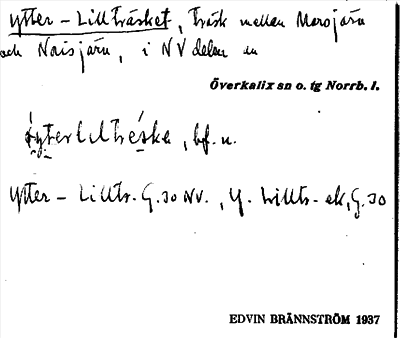 Ytter-Lillträsket, träsk mellan Morojärv
och Naisjärv, i NV delen av
Överkalix sn o. tg Norrb. l.
bf. n.
Ytter-Lilltr. G.30 NV., Y. Lilltr-ek, G.30
EDVIN BRÄNNSTRÖM 1937